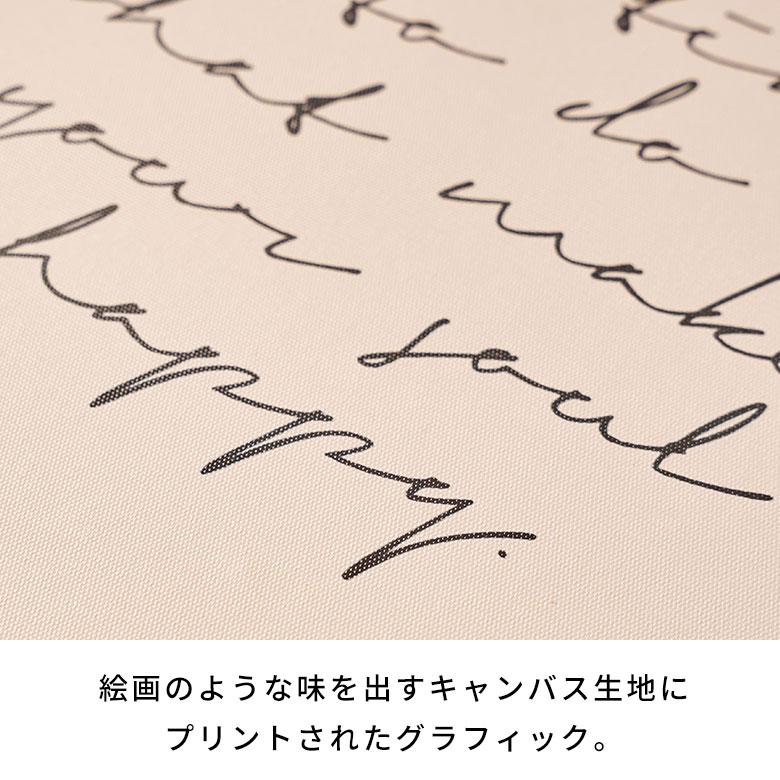 to
hat do
your make
happy. soul
絵画のような味を出すキャンバス生地に
プリントされたグラフィック。